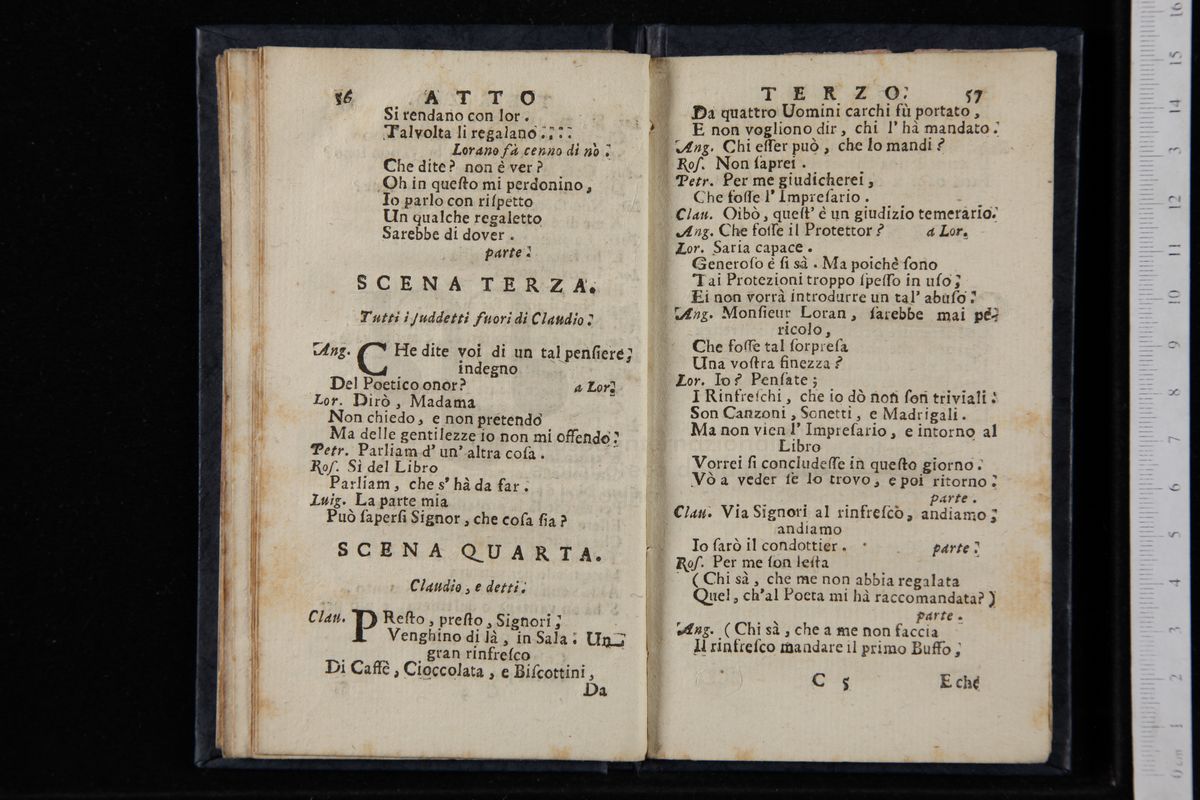 56 ATTO
Si rendano con lor.
Talvolta li regalano.:::
Lorano fà cenno di nò:
Che dite? non è ver?
Oh in queſto mi perdonino,
Io parlo con riſpetto
Un qualche regaletto
Sarebbe di dover.
parte:
SCENA TERZA.
Tutti i ſuddetti fuori di Claudio:
Ang. CHe dite voi di un tal penſiere,
indegno
Del Poetico onor? a Lor.
Lor. Dirò, Madama
Non chiedo, e non pretendo
Ma delle gentilezze io non mi offendo:
Petr. Parliam d' un' altra coſa.
Roſ. Sì del Libro
Parliam, che s' hà da far.
Luig. La parte mia
Può ſaperſi Signor, che coſa ſia?
SCENA QUARTA.
Claudio, e detti:
Clau. PReſto, preſto, Signori,
Venghino di là, in Sala: Un
gran rinfreſco
Di Caffè, Cioccolata, e Biſcottini,
Da
TERZO. 57
Da quattro Uomini carchi fù portato,
E non vogliono dir, chi l' hà mandato:
Ang. Chi eſſer può, che lo mandi?
Roſ. Non ſaprei.
Petr. Per me giudicherei,
Che foſſe l' Impreſario.
Clau. Oibò, queſt' è un giudizio temerario:
Ang. Che foſſe il Protettor? a Lor.
Lor. Saria capace.
Generoſo è ſi sà. Ma poichè ſono
Tai Protezioni troppo ſpeſſo in uſo,
Ei non vorrà introdurre un tal' abuſo:
Ang. Monſieur Loran, ſarebbe mai pe-
ricolo,
Che foſſe tal ſorpreſa
Una voſtra finezza?
Lor. Io? Penſate;
I Rinfreſchi, che io dò non ſon triviali:
Son Canzoni, Sonetti, e Madrigali.
Ma non vien l' Impreſario, e intorno al
Libro
Vorrei ſi concludeſſe in queſto giorno:
Vò a veder ſe lo trovo, e poi ritorno:
parte.
Clau. Via Signori al rinfreſco, andiamo,
andiamo
Io ſarò il condottier. parte:
Roſ. Per me ſon leſta
(Chi sà, che me non abbia regalata
Quel, ch'al Poeta mi hà raccomandata?)
parte.
Ang. (Chi sà, che a me non faccia
Il rinfreſco mandare il primo Buffo,
C 5 E che